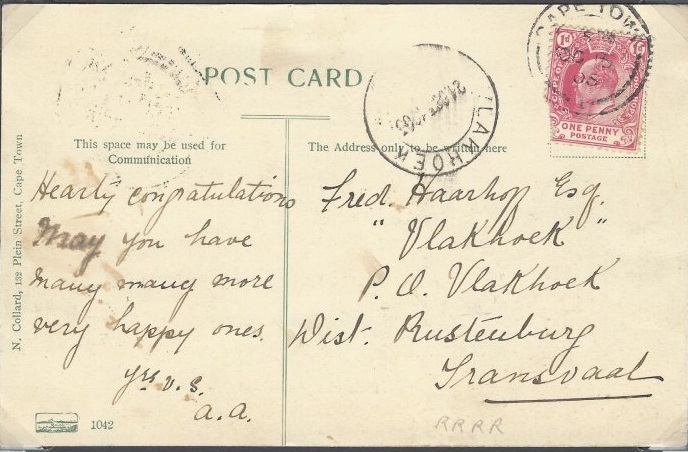 POST CARD
This space may be used for
Communication
The Address only to be written here
Hearty congratulations
May you have
many many more
very happy ones.
yrs v. s.
a.a.
Fred. Haarhoff Esq.
"Vlakhoek"
P.O. Vlakhoek
Dist. Rustenburg
Transvaal
CAPE TOWN
OC
05
1d
1d
ONE PENNY
POSTAGE
VLAKHOEK
N. Collard, 132 Plein Street, Cape Town
1042
RRRR